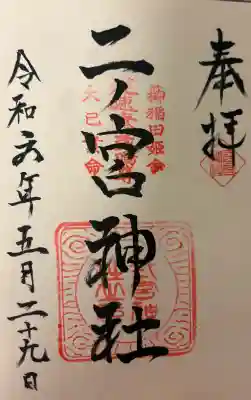 奉拝
二ノ宮神社
櫛稲田姫命
大己命
令和六年五月二十九日